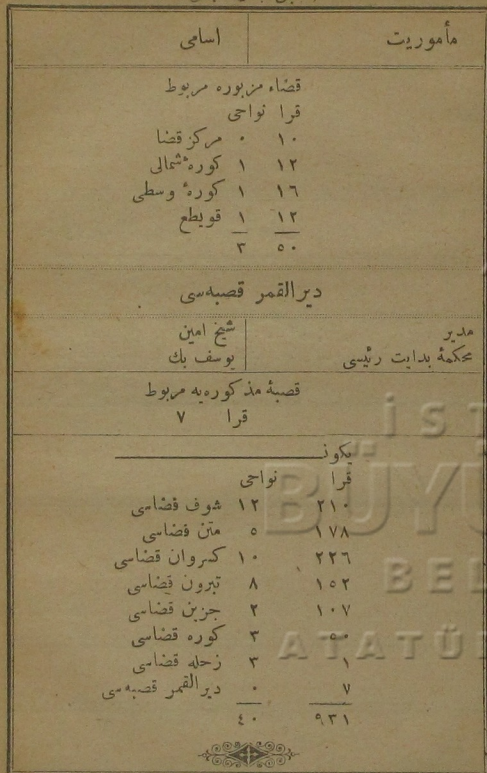 مأموریت اسامی
قضاء مزبوره مربوط
قرا نواحی
١٠ ٠ مركز قضا
١٢ ١ كورهٔ شمالی
١٦ ١ كورهٔ وسطی
١٢ ١ قويطع
٥٠ ٣
دیر القمر قصبه‌سی
مدیر شیخ امین
محكمهٔ بدایت رئیسی یوسف بك
قصبهٔ مذكوره‌یه مربوط
قرا ٧
یكون
قرا نواحی
٢١٠ ١٢ شوف قضاسی
١٧٨ ٥ متن قضاسی
٢٢٦ ١٠ كسروان قضاسی
١٥٢ ٨ تبرون قضاسی
١٠٧ ٢ جزین قضاسی
٥٠ ٣ كوره قضاسی
١ ٣ زحله قضاسی
٧ ٠ دیر القمر قصبه‌سی
٩٣١ ٤٠
İST
BÜYÜ
BEL
ATATÜ